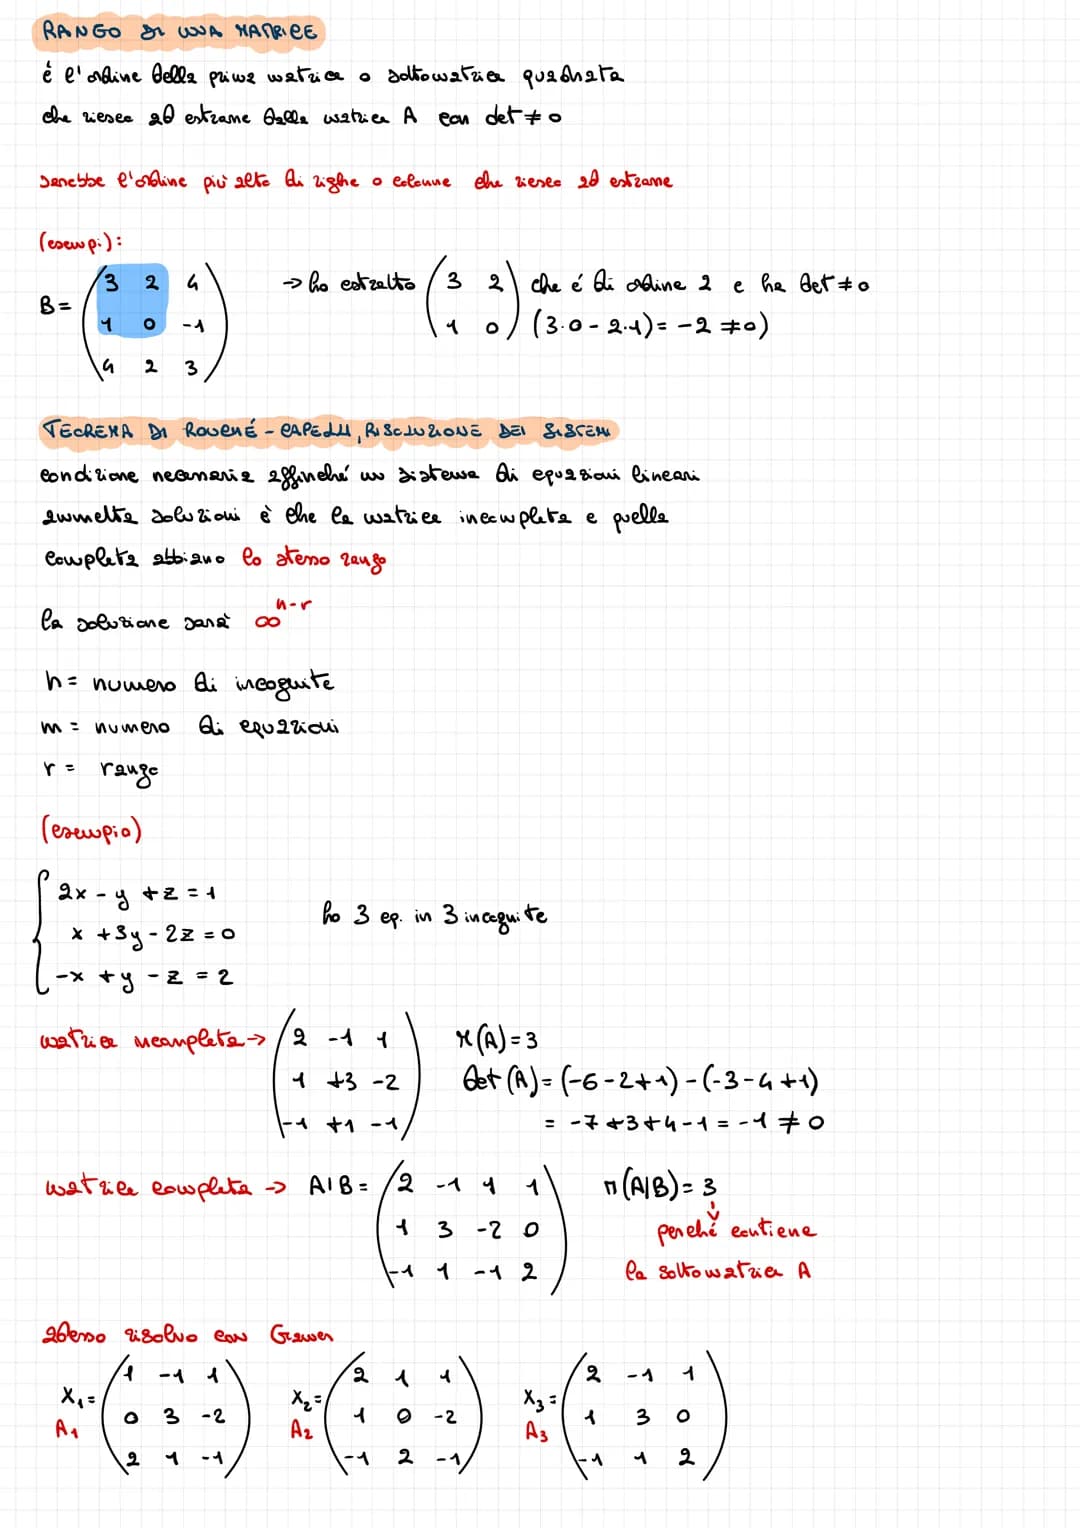 RANGO DI UNA MATRICE
é l'ordine della prima matrice o sottomatrice quadrata
che riesco ad estrarre dalla matrice A con det ≠ 0
sarebbe l'ordine più alto di righe o colonne che riesco ad estrarre
(esempi):
B = (3 2 4
1 0 -1
4 2 3)
→ ho estratto (3 2
1 0) che é di ordine 2 e ha det ≠ 0
(3·0 - 2·1) = -2 ≠ 0)
TEOREMA DI ROUCHÉ - CAPELLI, RISOLUZIONE DEI SISTEMI
condizione necessaria affinché un sistema di equazioni lineari
ammetta soluzioni è che la matrice incompleta e quella
completa abbiano lo stesso rango
la soluzione sarà ∞^{n-r}
n = numero di incognite
m = numero di equazioni
r = rango
(esempio)
2x - y + z = 1
x + 3y - 2z = 0
-x + y - z = 2
ho 3 eq. in 3 incognite
matrice incompleta → (2 -1 1
1 +3 -2
-1 +1 -1)
r(A) = 3
det(A) = (-6-2+1) - (-3-4+1)
= -7+3+4-1 = -1 ≠ 0
matrice completa → A|B = (2 -1 1 1
1 3 -2 0
-1 1 -1 2)
r(A|B) = 3
perché contiene
la sottomatrice A
adesso risolvo con Cramer
X₁ = A₁ (1 -1 1
0 3 -2
2 1 -1)
X₂ = A₂ (2 1 1
1 0 -2
-1 2 -1)
X₃ = A₃ (2 -1 1
1 3 0
-1 1 2)